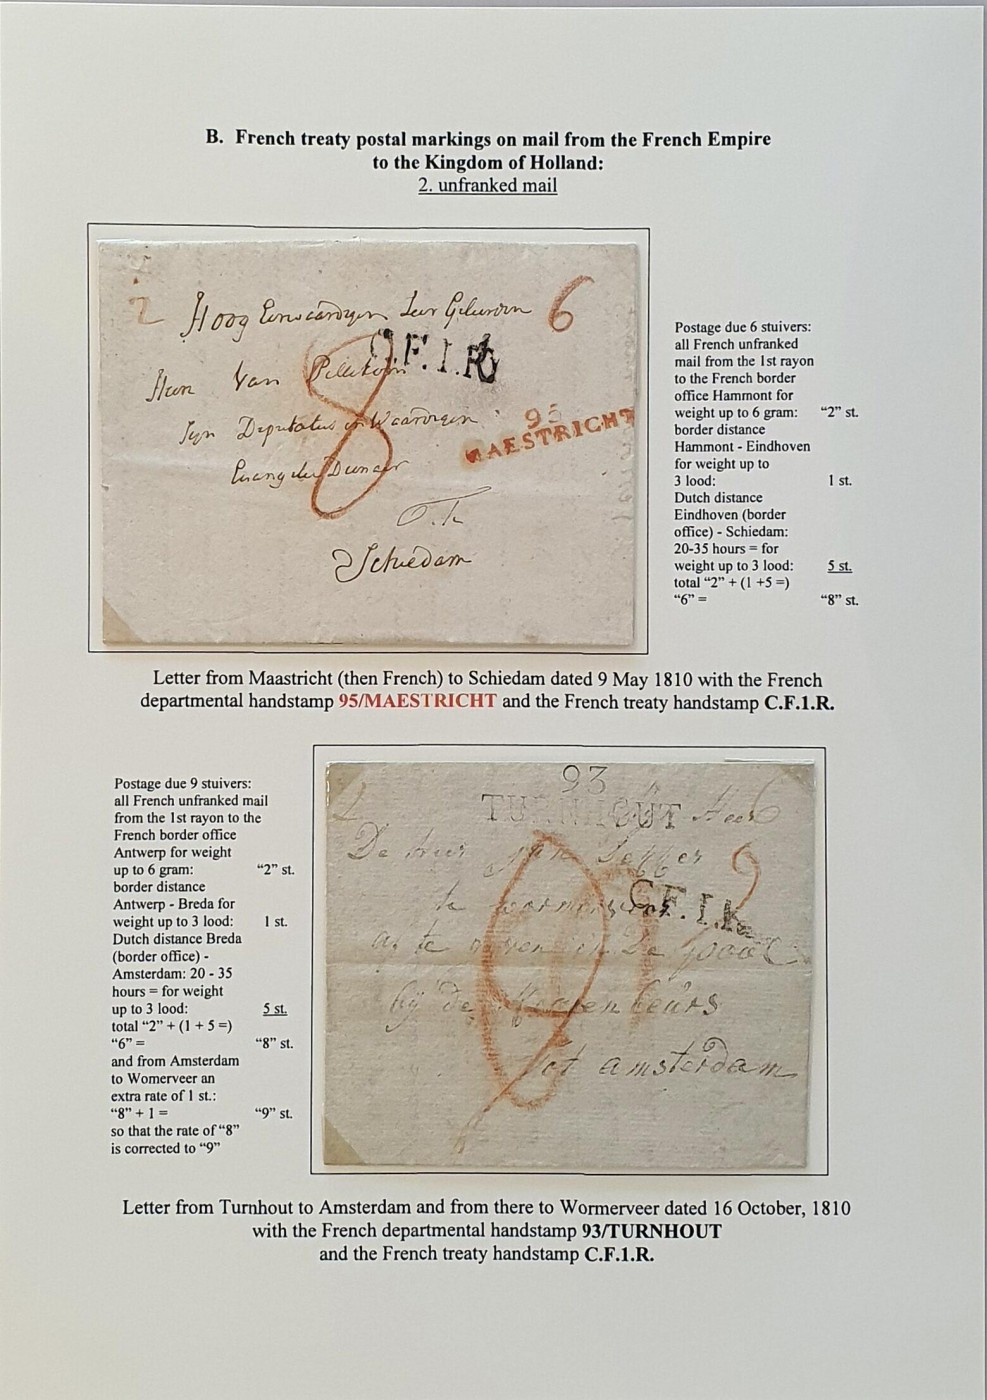 B. French treaty postal markings on mail from the French Empire
to the Kingdom of Holland:
2. unfranked mail
2
6
Hoog
C.F.1.R.
8
Van
95
MAESTRICHT
Schiedam
Postage due 6 stuivers:
all French unfranked
mail from the 1st rayon
to the French border
office Hammont for
weight up to 6 gram: “2” st.
border distance
Hammont - Eindhoven
for weight up to
3 lood: 1 st.
Dutch distance
Eindhoven (border
office) - Schiedam:
20-35 hours = for
weight up to 3 lood: 5 st.
total “2” + (1 +5 =)
“6” = “8” st.
Letter from Maastricht (then French) to Schiedam dated 9 May 1810 with the French
departmental handstamp 95/MAESTRICHT and the French treaty handstamp C.F.1.R.
Postage due 9 stuivers:
all French unfranked mail
from the 1st rayon to the
French border office
Antwerp for weight
up to 6 gram: “2” st.
border distance
Antwerp - Breda for
weight up to 3 lood: 1 st.
Dutch distance Breda
(border office) -
Amsterdam: 20 - 35
hours = for weight
up to 3 lood: 5 st.
total “2” + (1 + 5 =)
“6” = “8” st.
and from Amsterdam
to Womerveer an
extra rate of 1 st.:
“8” + 1 = “9” st.
so that the rate of “8”
is corrected to “9”
93
TURNHOUT
6
9
C.F.1.R.
in De
bij de
tot amsterdam
Letter from Turnhout to Amsterdam and from there to Wormerveer dated 16 October, 1810
with the French departmental handstamp 93/TURNHOUT
and the French treaty handstamp C.F.1.R.